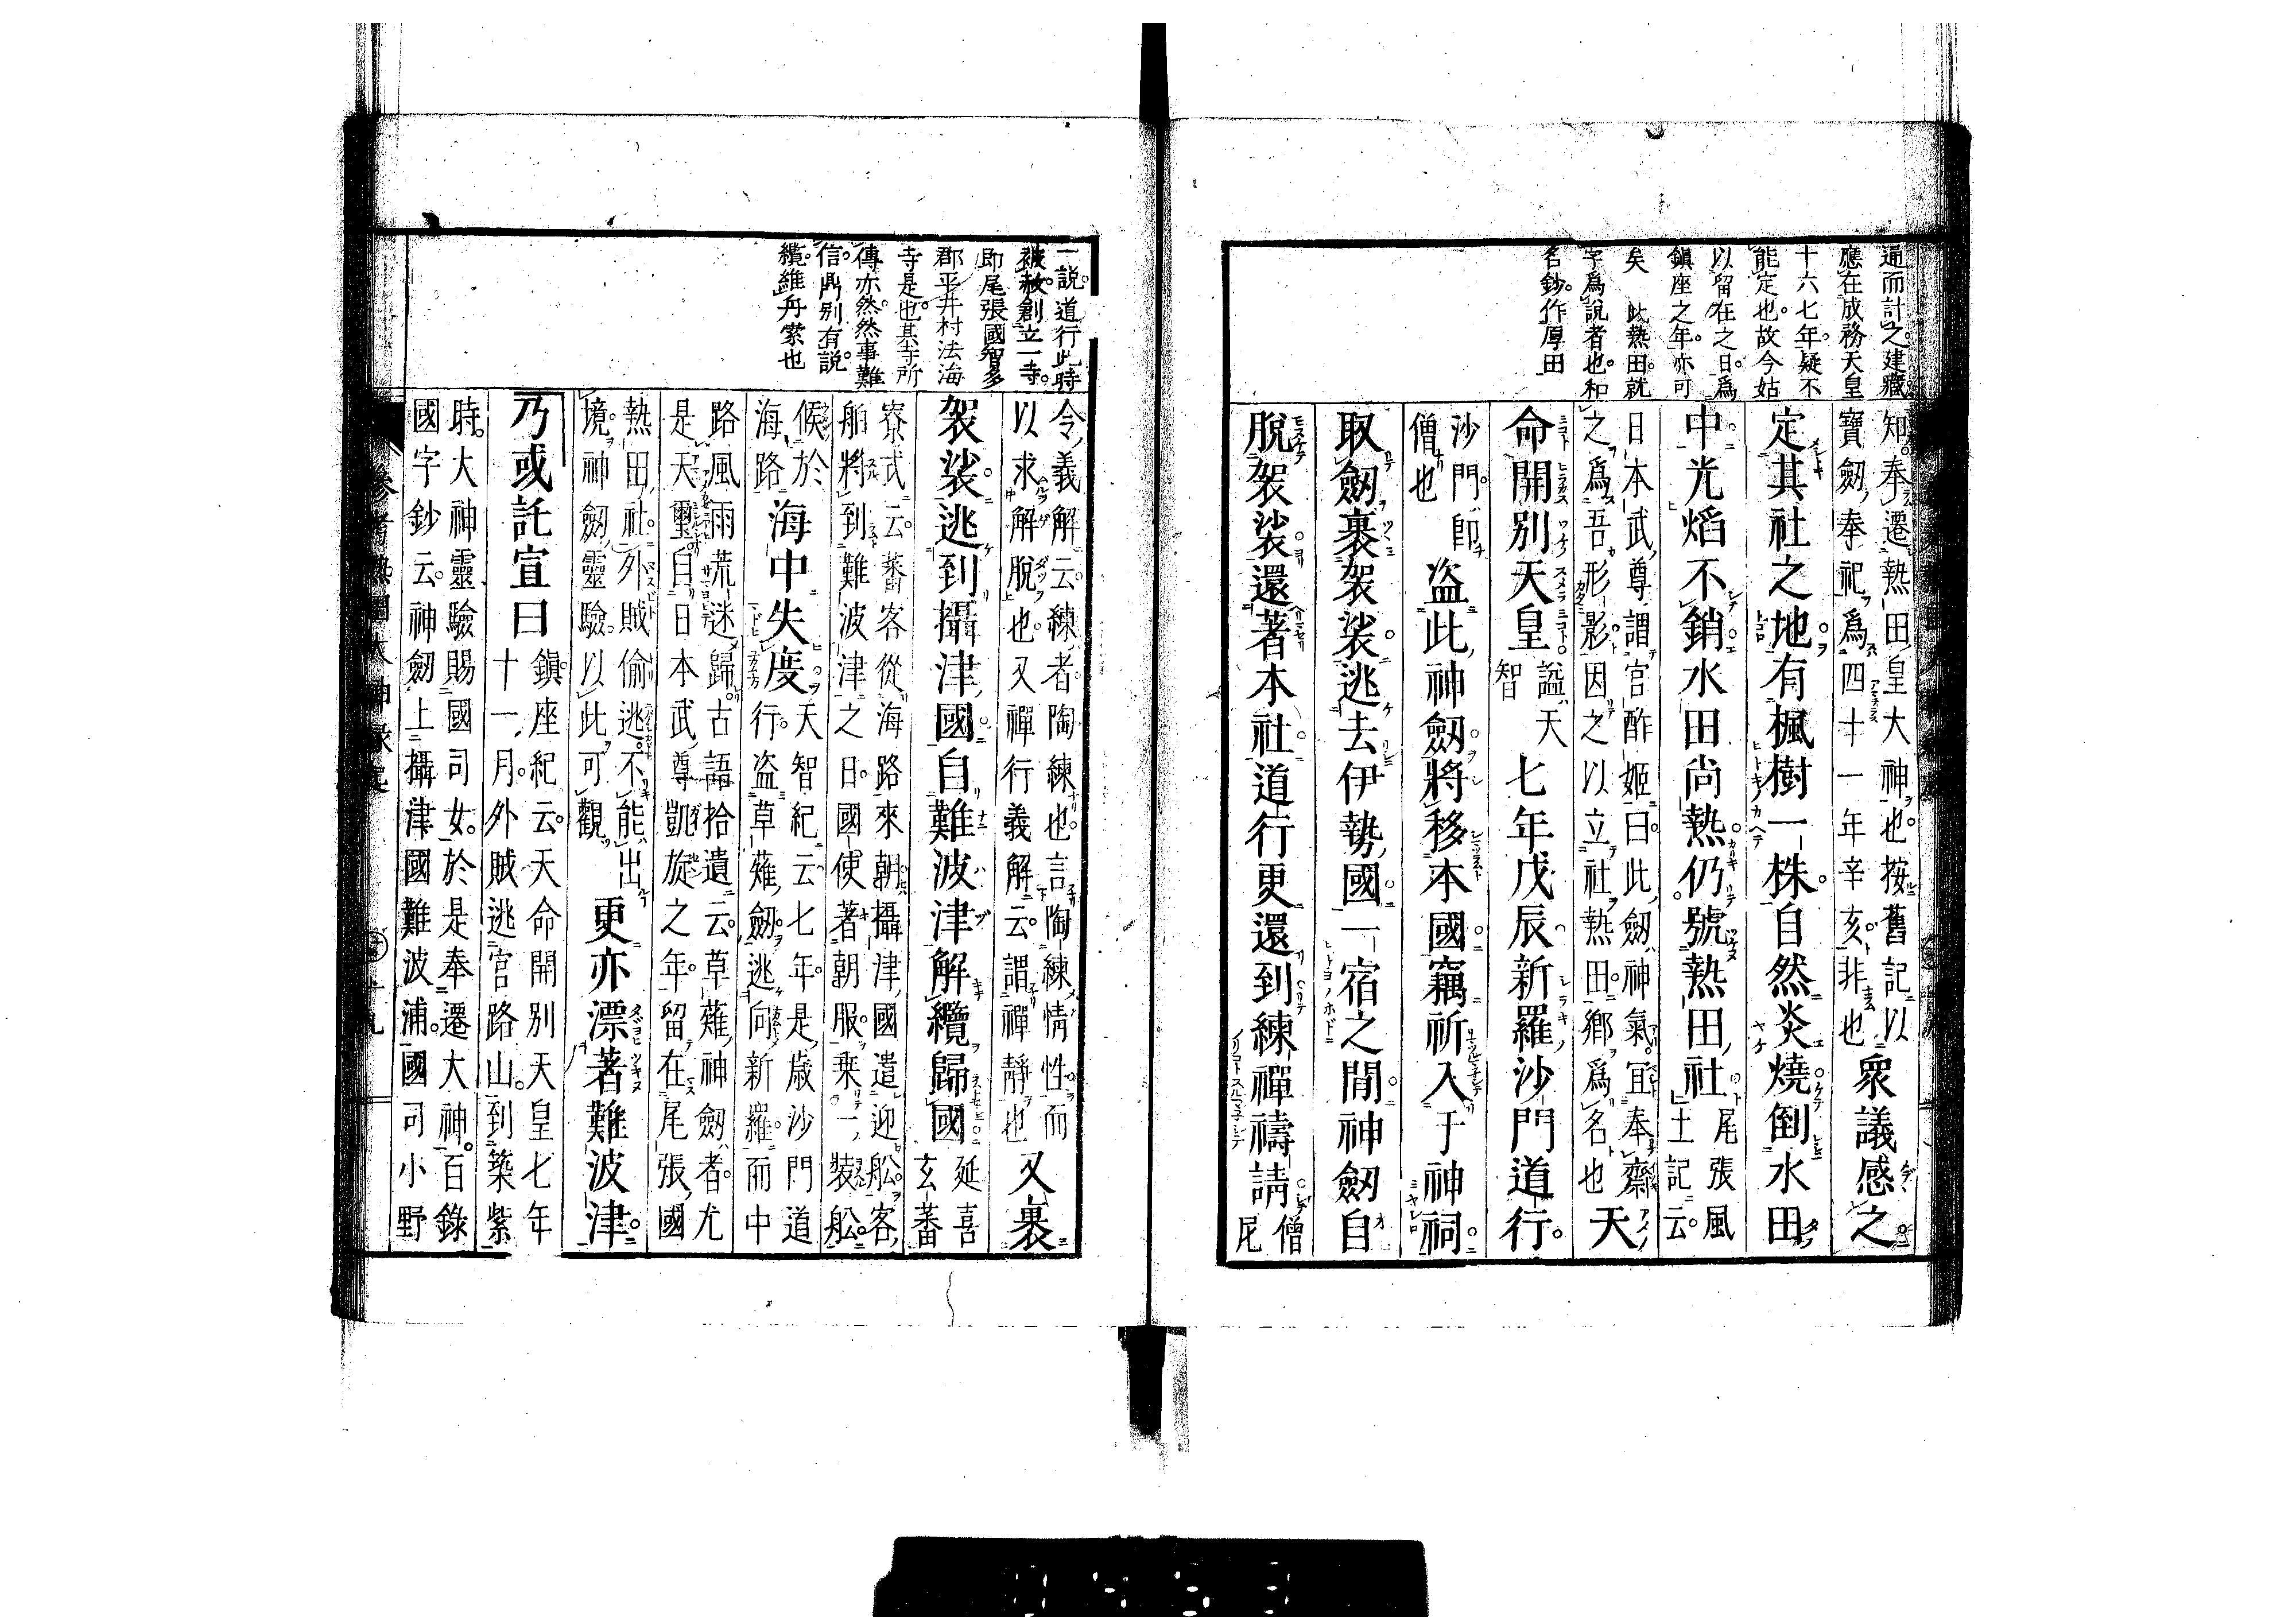 遍而計之建藏
應在成務天皇
十六七年疑不
能定也故今姑
以留在之日爲
鎮座之年亦可
矣　此熱田就
字爲說者也和
名鈔作厚田
知奉遷熱田皇大神也按舊記以
寶劔奉祀爲四十一年辛亥非也
衆議感之
定其社之地有楓樹一株自然炎燒倒水田
中光焰不銷水田尚熱仍號熱田社
尾張風
土記云
日本武尊謂宮酢姬曰此劔神氣宜奉齋
之爲吾形影因之以立社熱田鄉爲名也
天
命開別天皇
謚天
智
七年戊辰新羅沙門道行
沙門即
僧也
盗此神劔將移本國竊祈入于神祠
取劔裹袈裟逃去伊勢國一宿之間神劔自
脫袈裟還著本社道行更還到練禪禱請
僧
尼
一說道行此時
被赦創立一寺
即尾張國智多
郡平井村法海
寺是也其寺所
傳亦然然事難
信鼎別有說
纜維舟索也
令義解云練者陶練也言陶練情性而
以求解脫也又禪行義解云謂禪靜也
又裹
袈裟逃到攝津國自難波津解纜歸國
延喜
玄蕃
寮式云蕃客從海路來朝攝津國遣迎舩客
舶將到難波津之日國使著朝服乗一裝舩
候於
海路
海中失度
天智紀云七年是歳沙門道
行盗草薙劔逃向新羅而中
路風雨荒迷歸古語拾遺云草薙神劔者尤
是天璽自日本武尊凱旋之年留在尾張國
熱田社外賊偷逃不能出
境神劔靈驗以此可觀
更亦漂著難波津
乃或託宣曰
鎮座紀云天命開別天皇七年
十一月外賊逃宮路山到築紫
時大神靈驗賜國司女於是奉遷大神百錄
國字鈔云神劔上攝津國難波浦國司小野